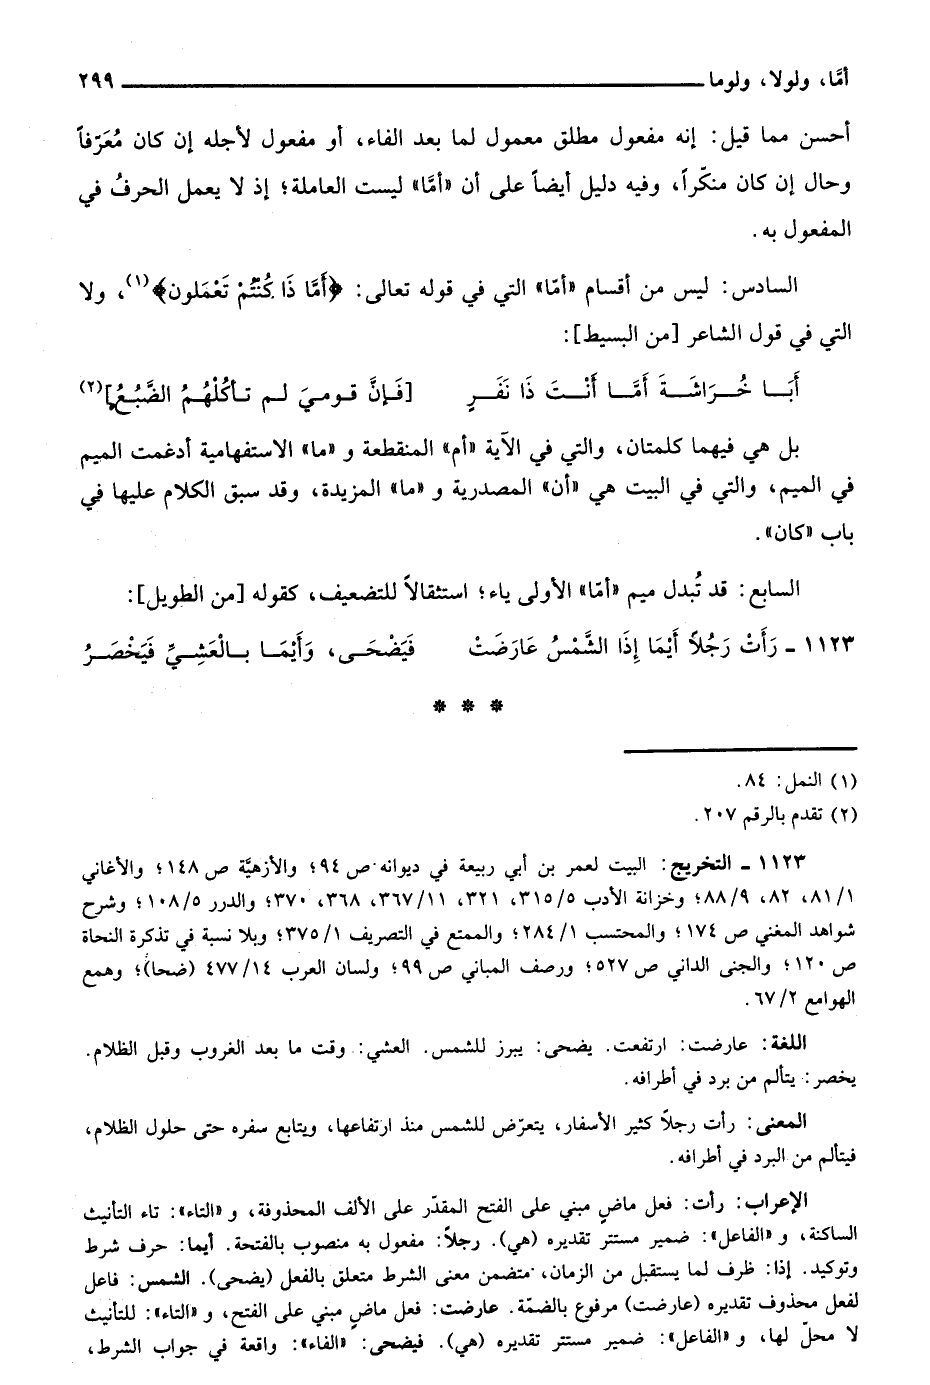 أمَّا، ولولا، ولوما ٢٩٩
أحسن مما قيل: إنه مفعول مطلق معمول لما بعد الفاء، أو مفعول لأجله إن كان مُعَرّفاً
وحال إن كان منكّراً، وفيه دليل أيضاً على أن «أمَّا» ليست العاملة؛ إذ لا يعمل الحرفُ في
المفعول به.
السادس: ليس من أقسام «أمّا» التي في قوله تعالى: ﴿أَمَّا ذَا كُنْتُمْ تَعْمَلون﴾(١)، ولا
التي في قول الشاعر [من البسيط]:
أَبَـا خُـرَاشَـةَ أَمَّـا أَنْـتَ ذَا نَفَـرٍ [فَـإنَّ قـومـيَ لـم تـأكُلْهُـمُ الضَّبُعُ](٢)
بل هي فيهما كلمتان، والتي في الآية «أم» المنقطعة و «ما» الاستفهامية أدغمت الميم
في الميم، والتي في البيت هي «أن» المصدرية و «ما» المزيدة، وقد سبق الكلام عليها في
باب «كان».
السابع: قد تُبدل ميم «أمّا» الأولى ياء؛ استثقالاً للتضعيف، كقوله [من الطويل]:
١١٢٣ ـ رَأَتْ رَجُلاً أَيْمَا إِذَا الشَّمْسُ عَارَضَتْ فَيَضْحَـى، وَأَيْمَـا بـالْعَشِـيِّ فَيَخْصَـرُ
* * *
(١) النمل: ٨٤.
(٢) تقدم بالرقم ٢٠٧.
١١٢٣ ـ التخريج: البيت لعمر بن أبي ربيعة في ديوانه ص ٩٤؛ والأزهيَّة ص ١٤٨؛ والأغاني
١/ ٨١، ٨٢، ٩/ ٨٨؛ وخزانة الأدب ٥/ ٣١٥، ٣٢١، ١١/ ٣٦٧، ٣٦٨، ٣٧٠؛ والدرر ٥/ ١٠٨؛ وشرح
شواهد المغني ص ١٧٤؛ والمحتسب ١/ ٢٨٤؛ والممتع في التصريف ١/ ٣٧٥؛ وبلا نسبة في تذكرة النحاة
ص ١٢٠؛ والجنى الداني ص ٥٢٧؛ ورصف المباني ص ٩٩؛ ولسان العرب ١٤/ ٤٧٧ (ضحا)؛ وهمع
الهوامع ٢/ ٦٧.
اللغة: عارضت: ارتفعت. يضحى: يبرز للشمس. العشي: وقت ما بعد الغروب وقبل الظلام.
يخصر: يتألم من برد في أطرافه.
المعنى: رأت رجلاً كثير الأسفار، يتعرّض للشمس منذ ارتفاعها، ويتابع سفره حتى حلول الظلام،
فيتألم من البرد في أطرافه.
الإعراب: رأت: فعل ماضٍ مبني على الفتح المقدّر على الألف المحذوفة، و «التاء»: تاء التأنيث
الساكنة، و «الفاعل»: ضمير مستتر تقديره (هي). رجلاً: مفعول به منصوب بالفتحة. أيما: حرف شرط
وتوكيد. إذا: ظرف لما يستقبل من الزمان، متضمن معنى الشرط متعلق بالفعل (يضحى). الشمس: فاعل
لفعل محذوف تقديره (عارضت) مرفوع بالضمّة. عارضت: فعل ماضٍ مبني على الفتح، و «التاء»: للتأنيث
لا محلّ لها، و «الفاعل»: ضمير مستتر تقديره (هي). فيضحى: «الفاء»: واقعة في جواب الشرط،